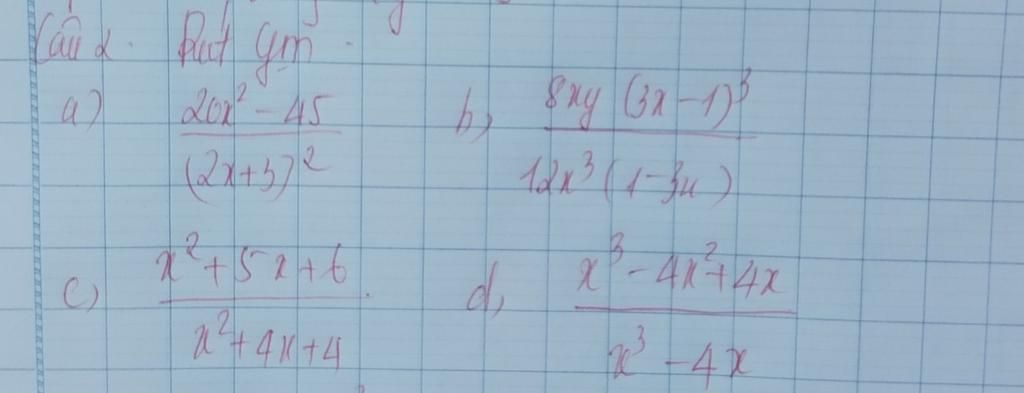 Câu 2. Rút gọn.
a) \frac{20x^2 - 45}{(2x+3)^2} b, \frac{8xy (3x-1)^3}{12x^3 (1-3x)}
c, \frac{x^2+5x+6}{x^2+4x+4}. d, \frac{x^3-4x^2+4x}{x^3-4x}